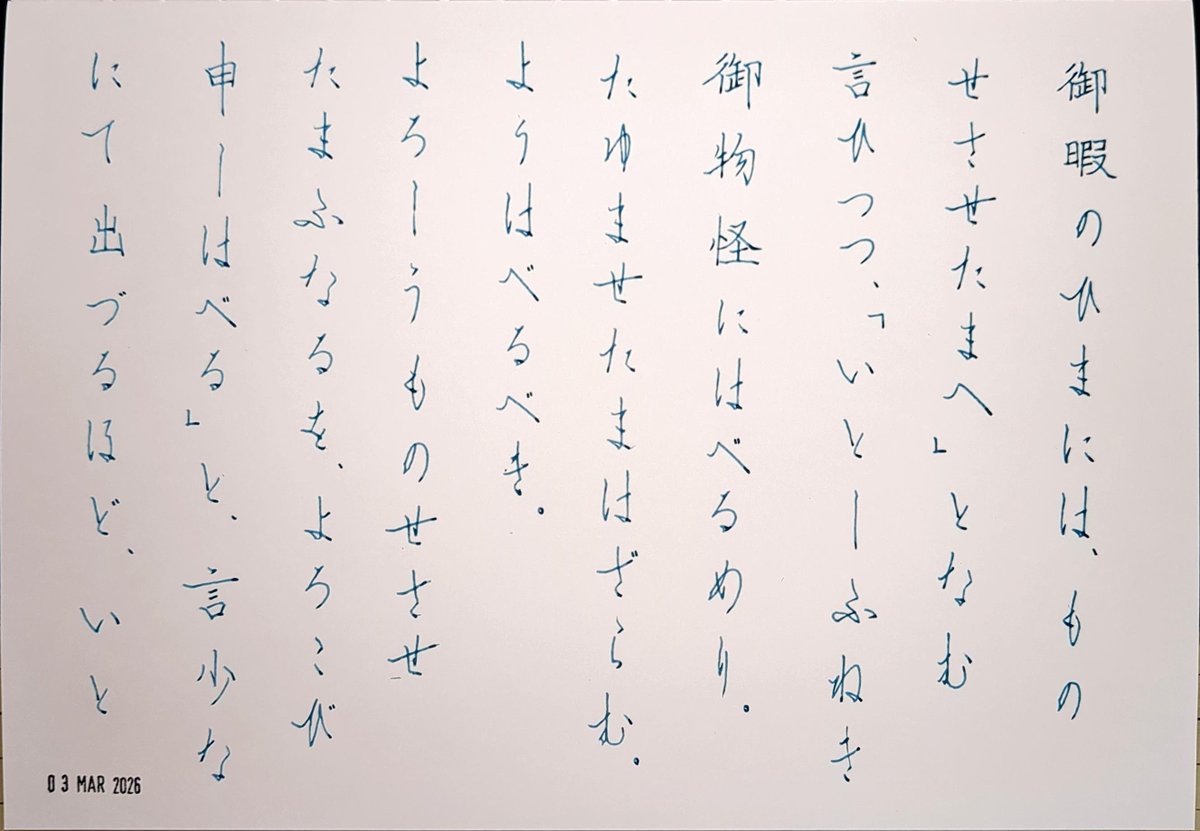 御暇のひまには、もの
せさせたまへ」となむ
言ひつつ、「いとしふねき
御物怪にはべるめり。
たゆませたまはざらむ。
ようはべるべき。
よろしうものせさせ
たまふなるを、よろこび
申しはべる」と、言少な
にて出づるほど、いと
03 MAR 2026